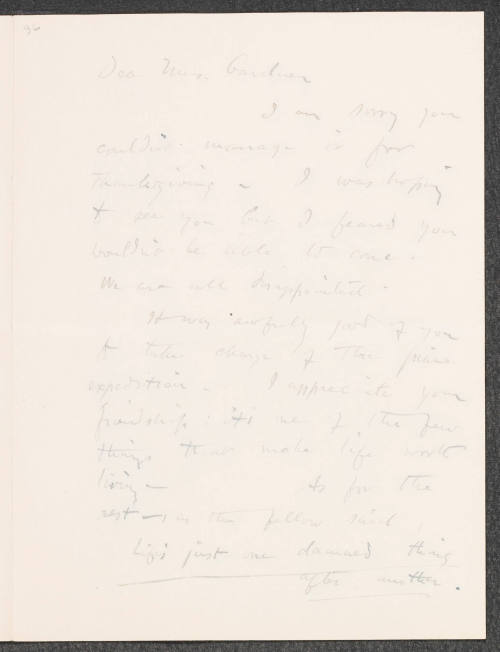 Dear Mrs. Gardner
I am sorry you
couldn't manage it for
Thanksgiving – I was hoping
to see you but I feared you
wouldn't be able to come.
We are all disappointed.
It was awfully good of you
to take charge of the
expedition. I appreciate your
friendship: it's one of the few
things that make life worth
living – As for the
rest –, as the fellow said,
Life's just one damned thing
after another.